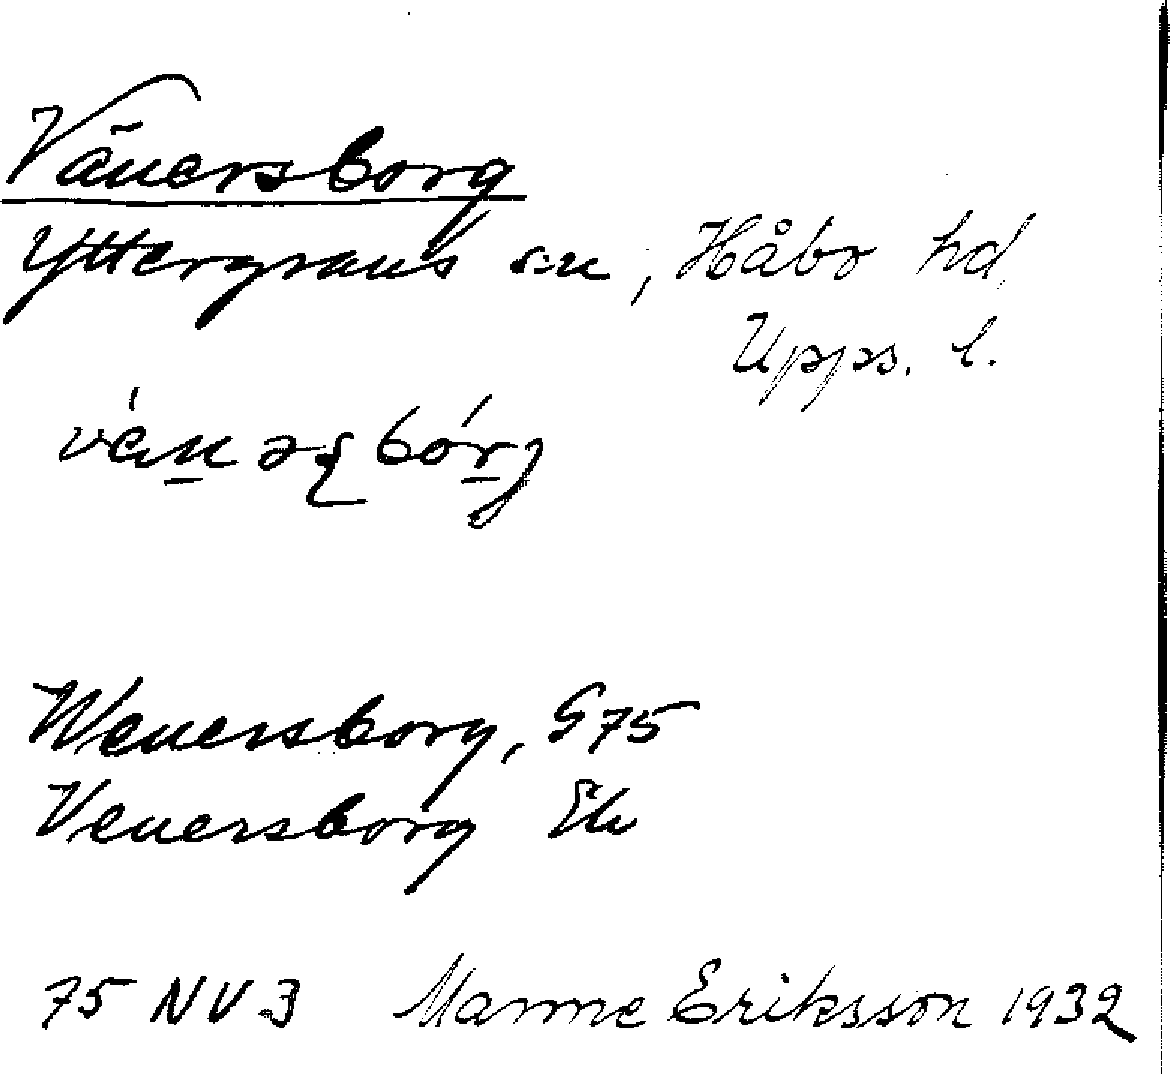 Vänersborg
Yttergrans sn, Håbo hd
Upps. l.
Wenersborg, G75
Venersborg Ek
75 NV 3 Manne Eriksson 1932